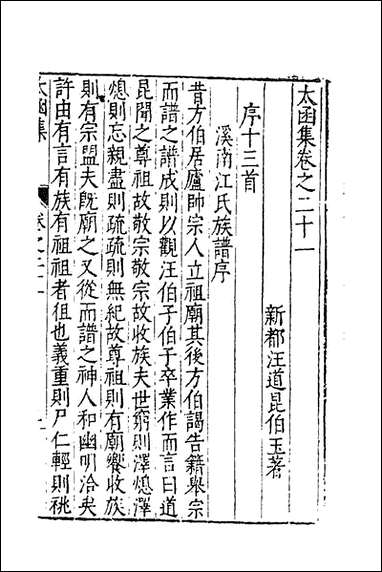 太函集卷之二十一
新都汪道昆伯玉著
序十三首
溪南江氏族譜序
昔方伯居廬帥宗人立祖廟其後方伯謁告籍舉宗
而譜之譜成則以觀汪伯子伯子卒業作而言曰道
昆聞之尊祖故敬宗敬宗故收族夫世窮則澤熄澤
熄則忘親盡則疏疏則無紀故尊祖則有廟饗收族
則有宗盟夫既廟之又從而譜之神人和幽明洽矣
許由有言有族有祖祖者徂也義重則尸仁輕則祧
太函集
卷之二十一